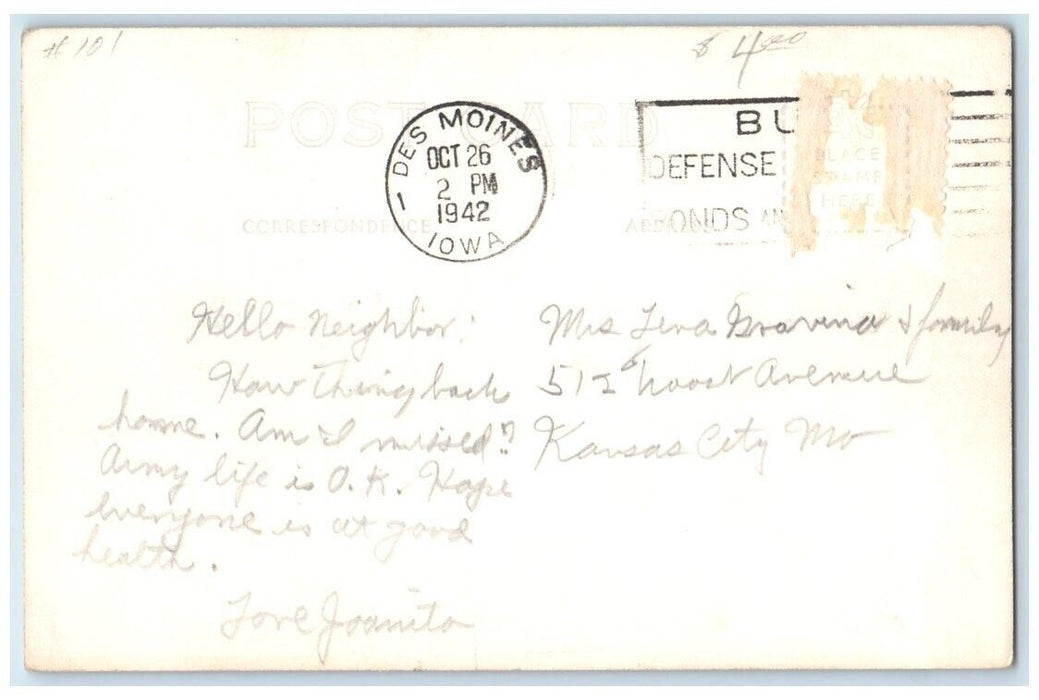 # 101
$ 4.00
POST CARD
DES MOINES
OCT 26
2 PM
1942
IOWA
1
BU
DEFENSE
BONDS AN
PLACE
STAMP
HERE
CORRESPONDENCE
ADDRESS
Hello Neighbor:
How Thing back
home. Am I missed??
Army life is O.K. Hope
everyone is at good
health.
Love Juanita
Mrs Lena Gravina & family
512 Troost Avenue
Kansas City Mo